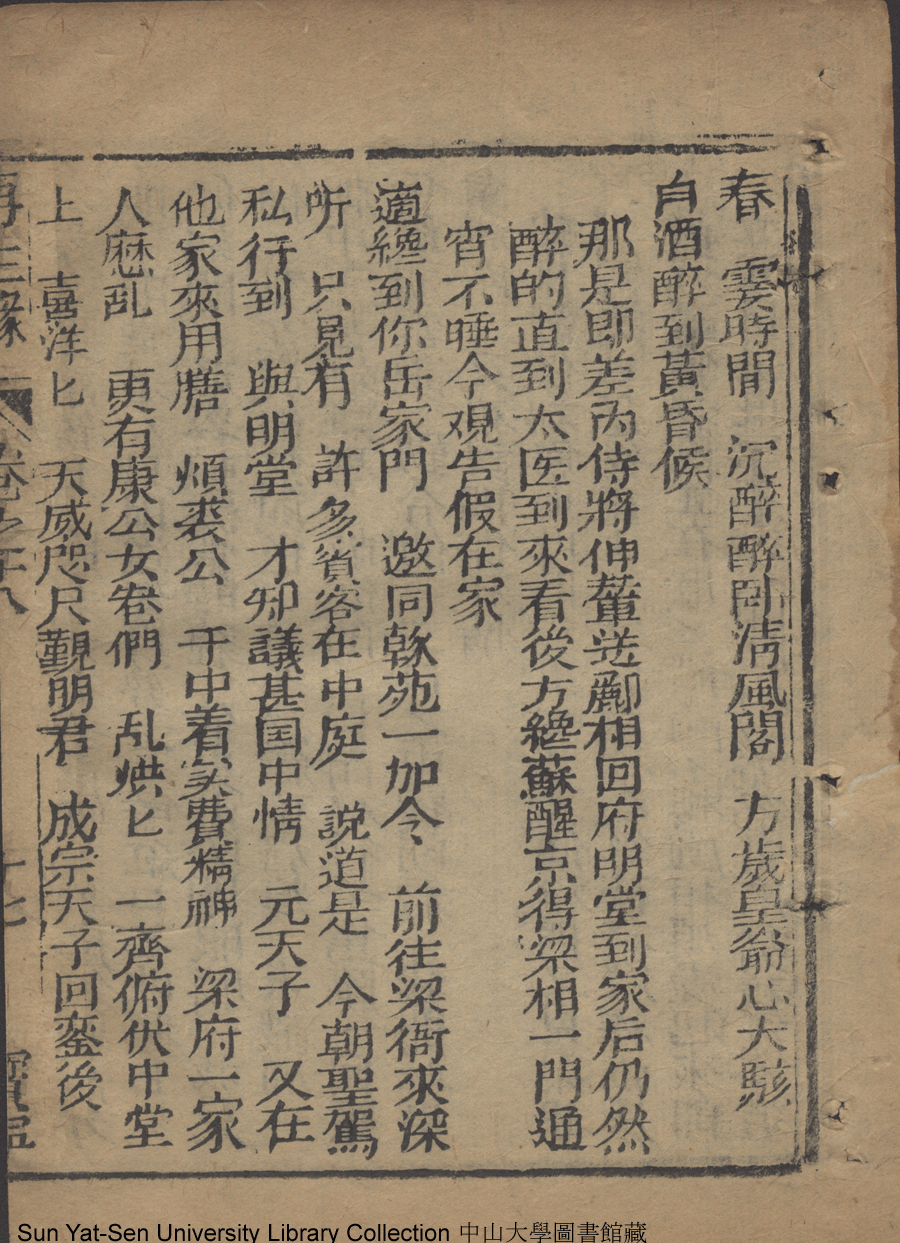 春　霎時間　沉醉醉卧清風閣　方歲皇爺心大駭
自酒醉到黃昏候
那是即差內侍將伸輦送酈相回府明堂到家后仍然
醉的直到太医到來看後方纔蘇醒京得梁相一門通
宵不睡今观告假在家
適纔到你岳家門　邀同翰苑一加令　前往梁衙來深
所　只見有　許多賓客在中庭　説道是　今朝聖駕
私行到　與明堂　才卿議甚国中情　元天子　又在
他家來用膳　煩裘公　于中着实費精神　梁府一家
人慼乱　更有康公女眷們　乱烘匕　一齊俯伏中堂
上　喜洋匕　天威咫尺覲明君　成宗天子回鑾後
再生緣　卷之十八　十七　寳寧
Sun Yat-Sen University Library Collection 中山大學圖書館藏